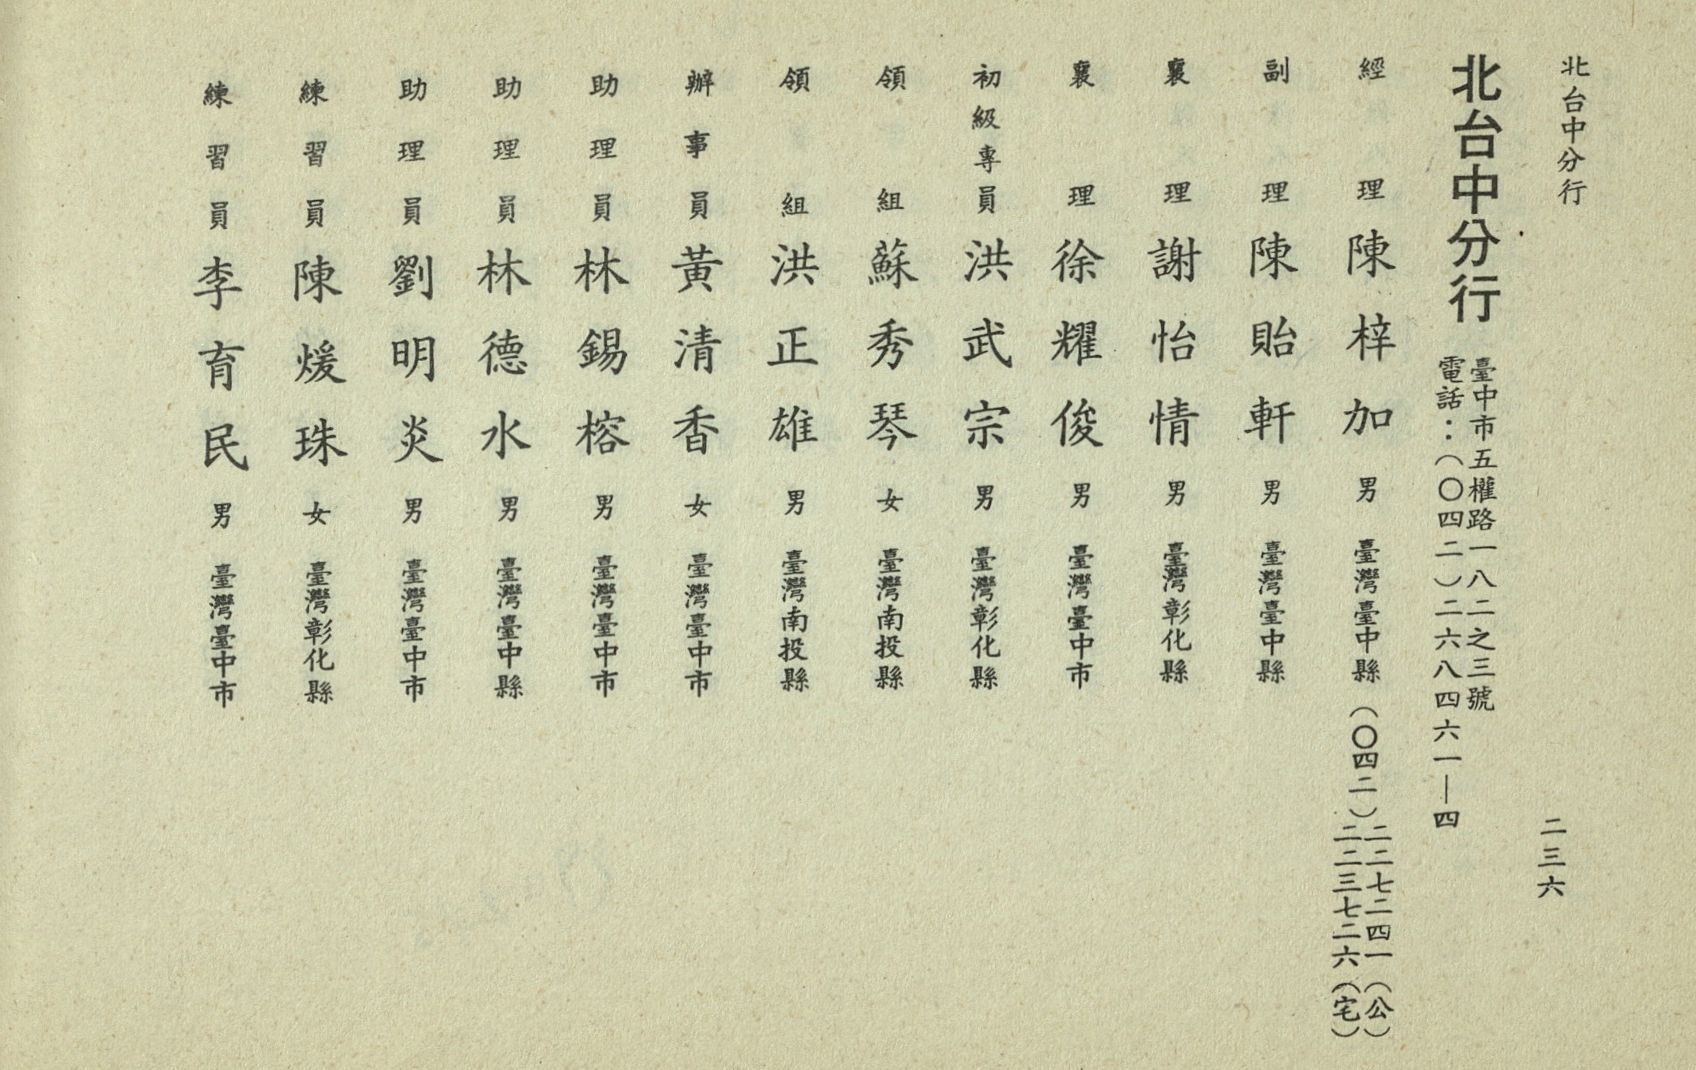 北台中分行
二三六
北台中分行
臺中市五權路一八二之三號
電話：（〇四二）二六八四六一—四
經理 陳梓加 男 臺灣臺中縣 （〇四二）
二二七二四一（公）
二二三七二六（宅）
副理 陳貽軒 男 臺灣臺中縣
襄理 謝怡情 男 臺灣彰化縣
襄理 徐耀俊 男 臺灣臺中市
初級專員 洪武宗 男 臺灣彰化縣
領組 蘇秀琴 女 臺灣南投縣
領組 洪正雄 男 臺灣南投縣
辦事員 黃清香 女 臺灣臺中市
助理員 林錫榕 男 臺灣臺中市
助理員 林德水 男 臺灣臺中縣
助理員 劉明炎 男 臺灣臺中市
練習員 陳煖珠 女 臺灣彰化縣
練習員 李育民 男 臺灣臺中市